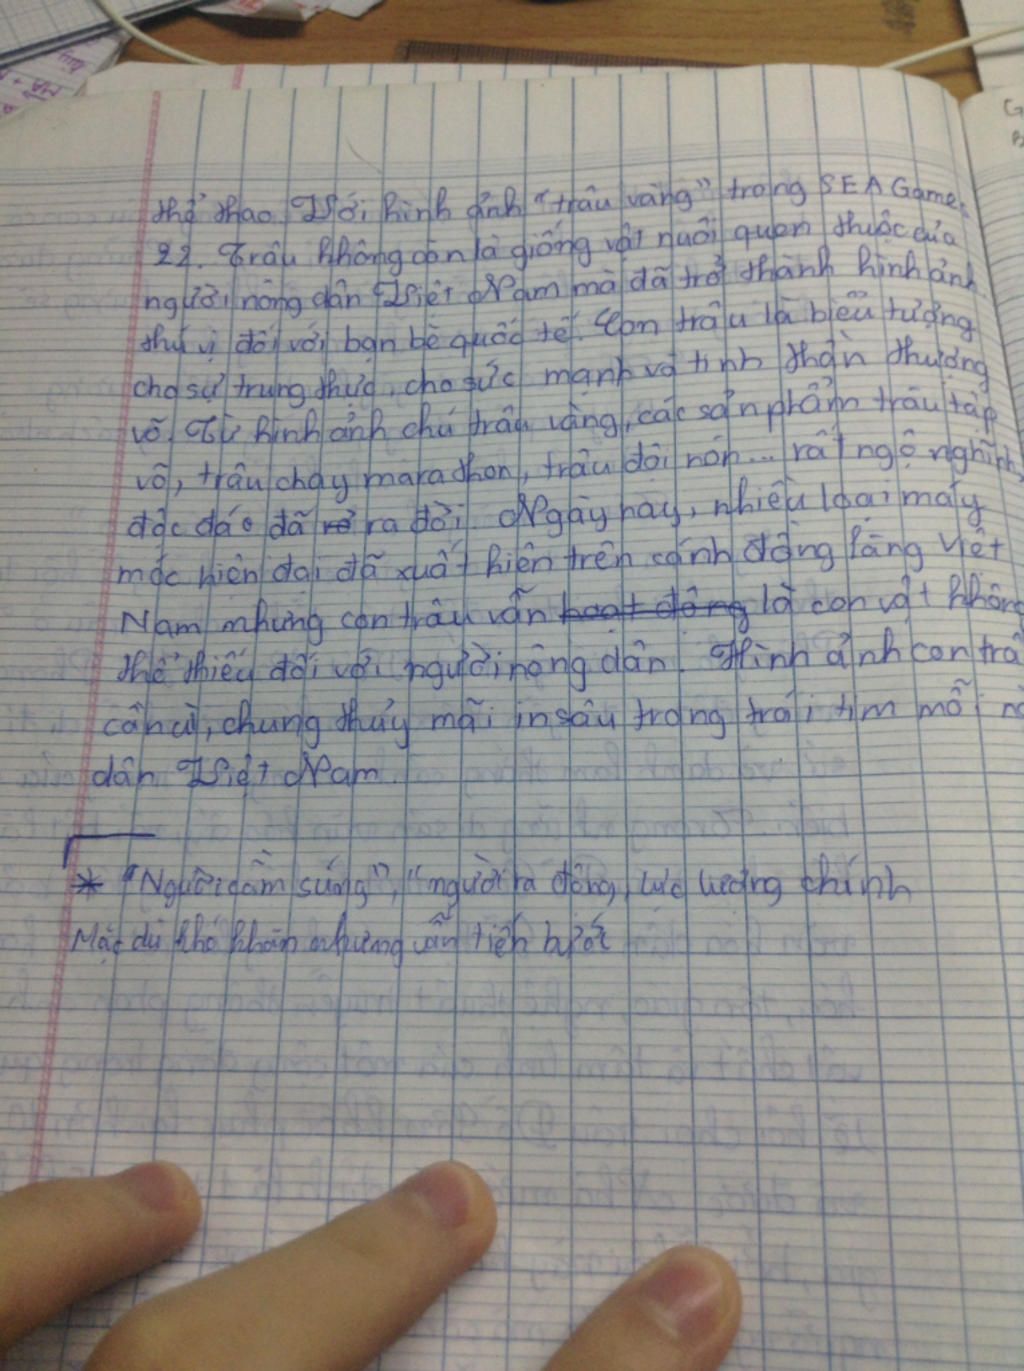 thể thao. Với hình ảnh "trâu vàng" trong SEA Games
22. Trâu không còn là giống vật nuôi quen thuộc của
người nông dân Việt Nam mà đã trở thành hình ảnh
thú vị đối với bạn bè quốc tế. Con trâu là biểu tượng
cho sự trung thực, cho sức mạnh và tinh thần thượng
võ. Từ hình ảnh chú trâu vàng, các sản phẩm trâu tập
võ, trâu chạy marathon, trâu đội nón... rất ngộ nghĩnh,
độc đáo đã ra đời. Ngày nay, nhiều loại máy
móc hiện đại đã xuất hiện trên cánh đồng làng Việt
Nam nhưng con trâu vẫn hoạt động là con vật không
thể thiếu đối với người nông dân. Hình ảnh con trâ
cần cù, chung thủy mãi in sâu trong trái tim mỗi
dân Việt Nam
* "Người cầm súng", "người ra đồng, lực lượng chính
Mặc dù khó khăn nhưng vẫn tiến bước